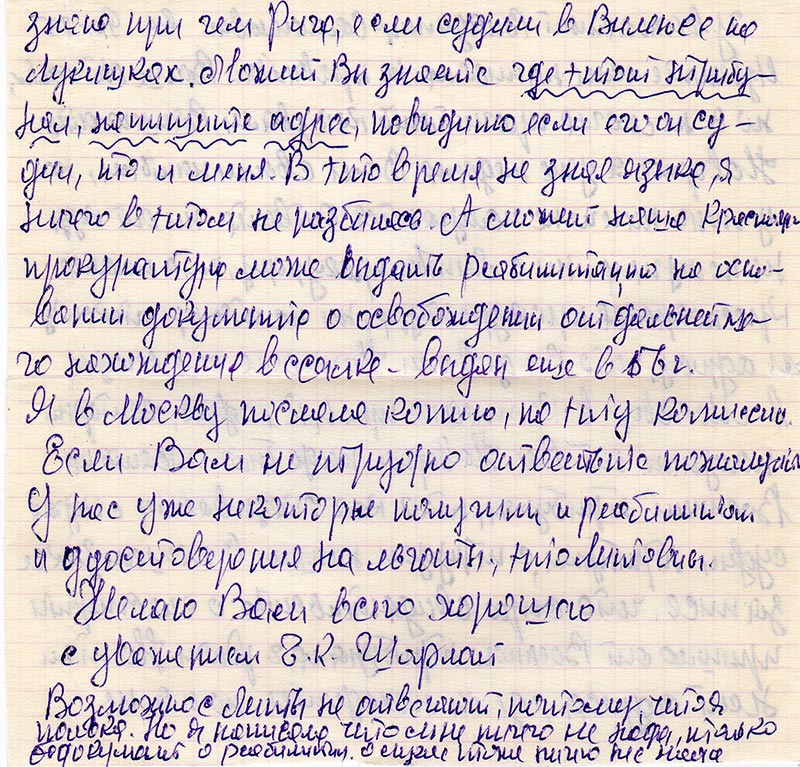 знаю при чем Рига, если судили в Вильнюсе на
Лукишках. Может Вы знаете где этот трибу-
нал, напишите адрес, повидимо если его он су-
дил, то и меня. В это время не зная языка, я
ничего в этом не разбилась. А сможет наша Краснояр
прокуратура може выдать реабилитацию на осно-
вании документа о освобождении от дальнейше-
го нахождение в ссылке - выдан еще в 56 г.
Я в Москву послала копию, на эту комиссию.
Если Вам не трудно ответьте пожалуйста
У нас уже некоторые получили и реабилитац
и удостоверения на льготы, это Литовцы.
Желаю Вам всего хорошого
с уважением Е.К. Шарлат
Возможно с Литвы не отвечают, потому, что я
полька. Но я написала что мне ничего не надо, только
документ о реабилитац. о ничего не надо